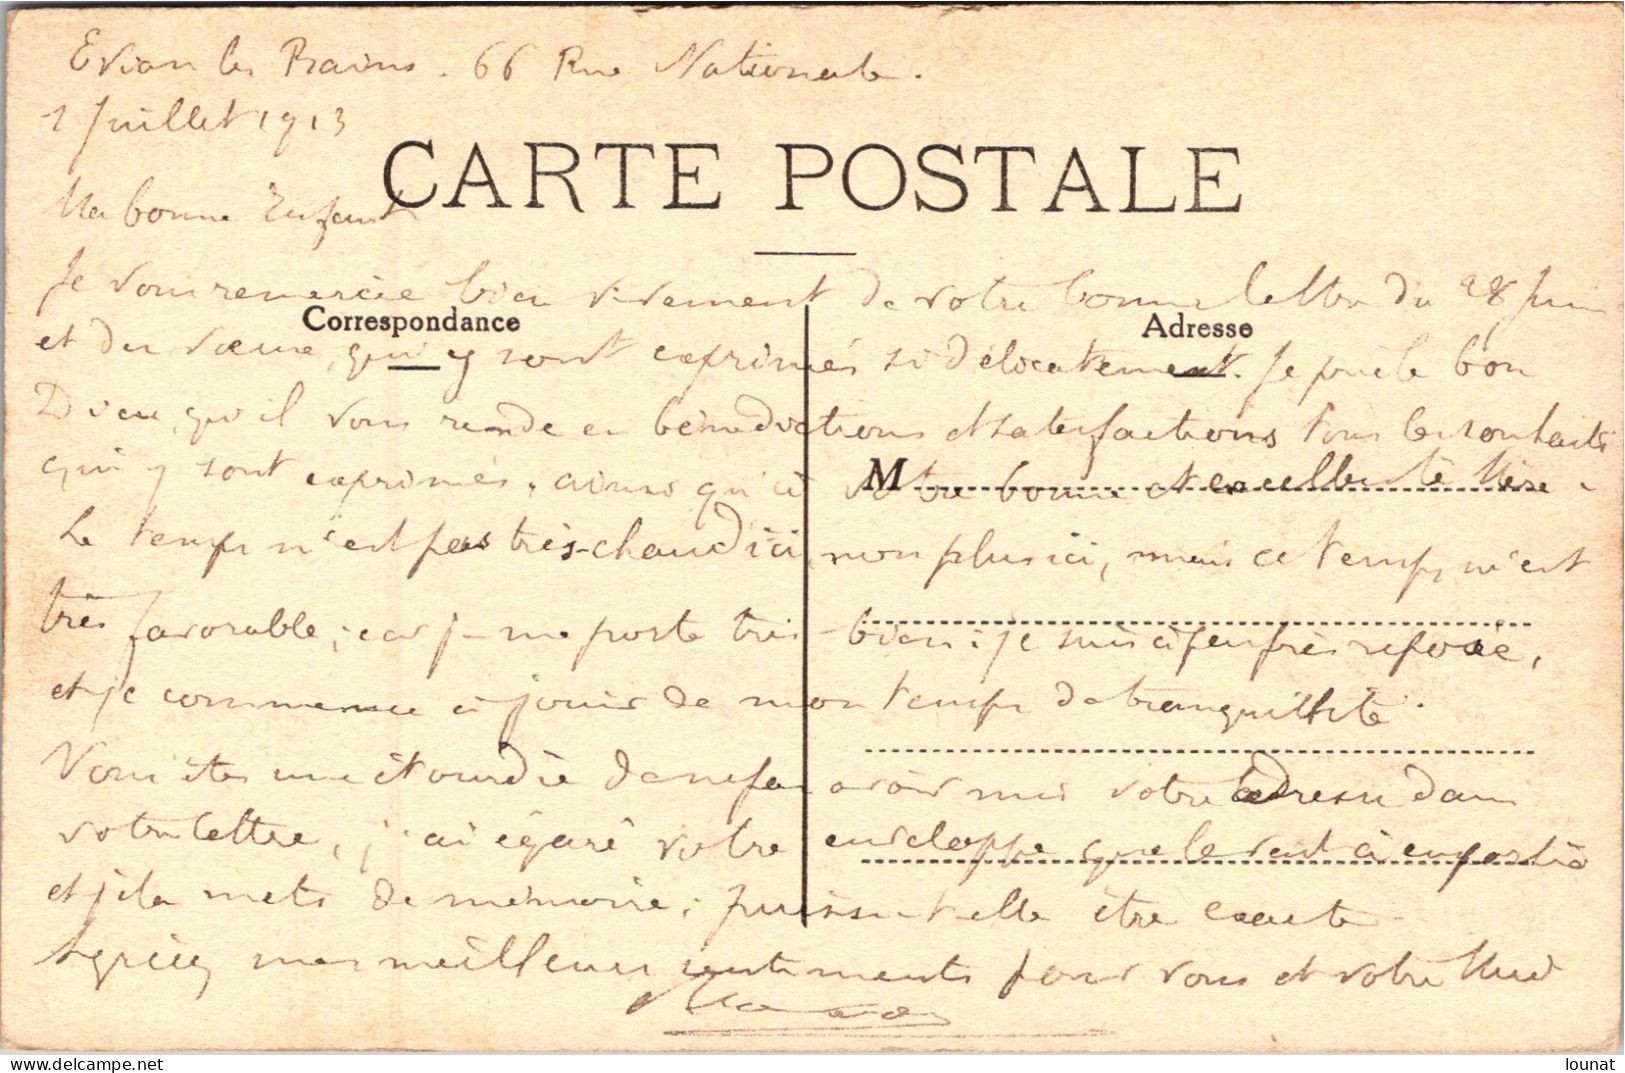 Evian les Bains. 66 Rue Nationale.
1 Juillet 1913
CARTE POSTALE
Ma bonne Enfant
Je vous remercie bien vivement de votre bonne lettre du 28 Juin
Correspondance
Adresse
et des vœux, qui y sont exprimés si délicatement. Je prie le bon
Dieu, qu'il vous rende en bénédictions et satisfactions tous les souhaits
M
qui y sont exprimés, ainsi qu'à votre bonne et excellente Mère.
Le temps n'est pas très-chaud ici, non plus ici, mais ce temps, m'est
très favorable; car je me porte très-bien: je suis à peu près reposée,
et je commence à jouir de mon temps de tranquillité.
Vous êtes une étourdie de ne pas avoir mis votre adresse dans
votre lettre, j'ai égaré votre enveloppe que le vent à emporté
et je la mets de mémoire; puisse-t-elle être exacte.
Agréez mes meilleurs sentiments pour vous et votre
lounat